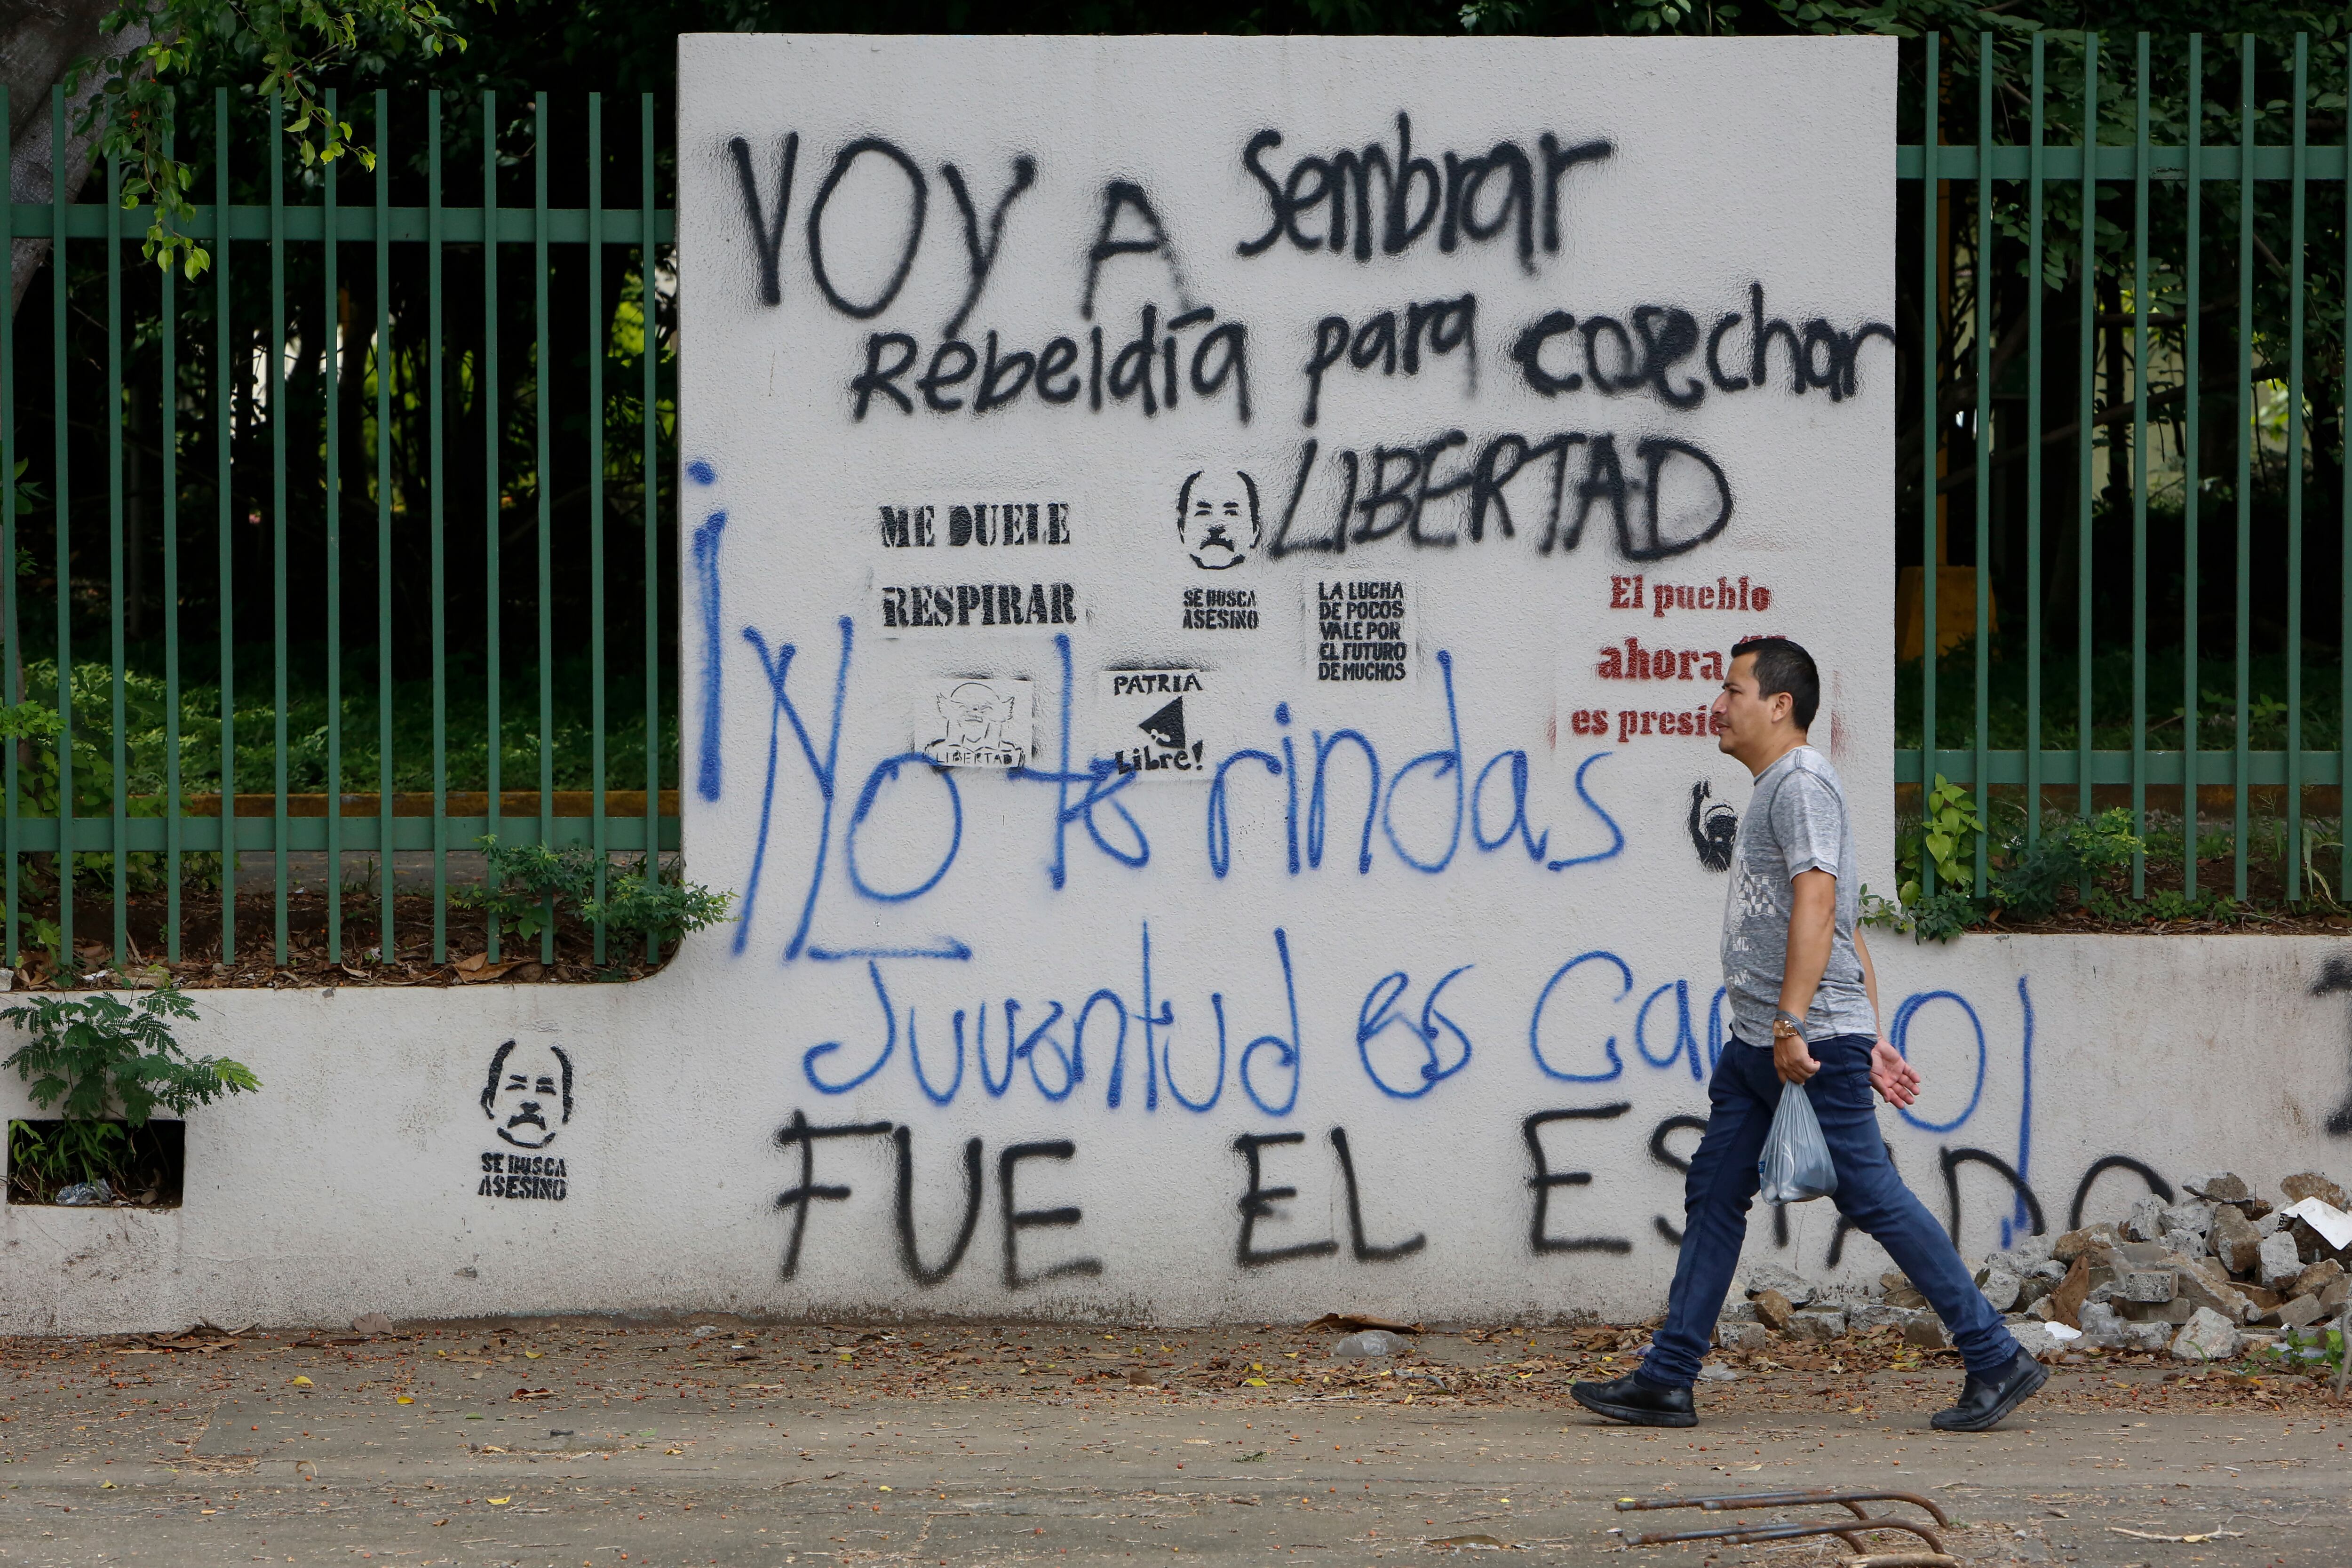 VOY A Sembrar
Rebeldía para cosechar
LIBERTAD
ME DUELE
RESPIRAR
SE BUSCA
ASESINO
LA LUCHA
DE POCOS
VALE POR
EL FUTURO
DE MUCHOS
El pueblo
ahora
es
LIBERTAD
PATRIA
Libre!
¡No te rindas
Juventud es
FUE EL
SE BUSCA
ASESINO